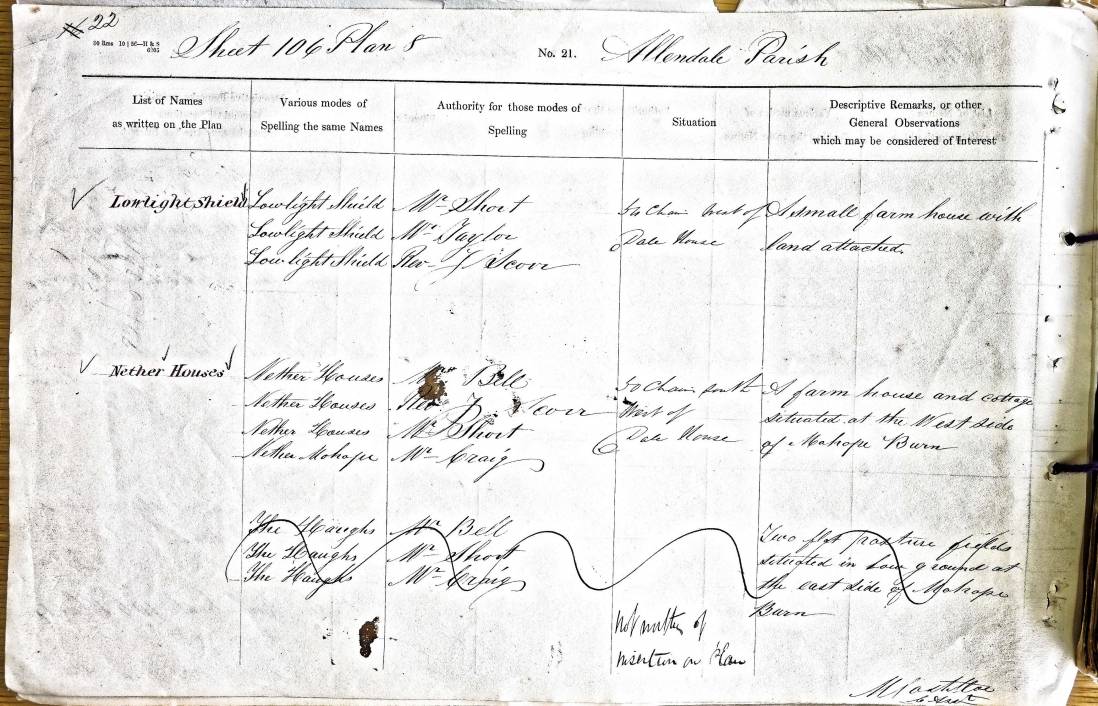 22
Sheet 106 Plan 8 No. 21. Allendale Parish
List of Names
as written on the Plan
Various modes of
Spelling the same Names
Authority for those modes of
Spelling
Situation
Descriptive Remarks, or other
General Observations
which may be considered of Interest
Lowlight Shield
Lowlight Shield
Lowlight Shield
Low light Shield
Mr. Short
Mr. Taylor
Rev J Scorr
West of
Dale House
A small farm house with
land attached.
Nether Houses
Nether Houses
Nether Houses
Nether Houses
Nether Mohope
Bell
Rev J Scorr
Mr. Short
Mr. Craig
50 Chain South
West of
Dale House
A farm house and cottage
situated at the West side
of Mohope Burn
The Haughs
The Haughs
The Haughs
Mr Bell
Mr. Short
Mr. Craig
not
insertion on Plan
Two flat pasture fields
situated in low ground at
the east side of Mohope
Burn